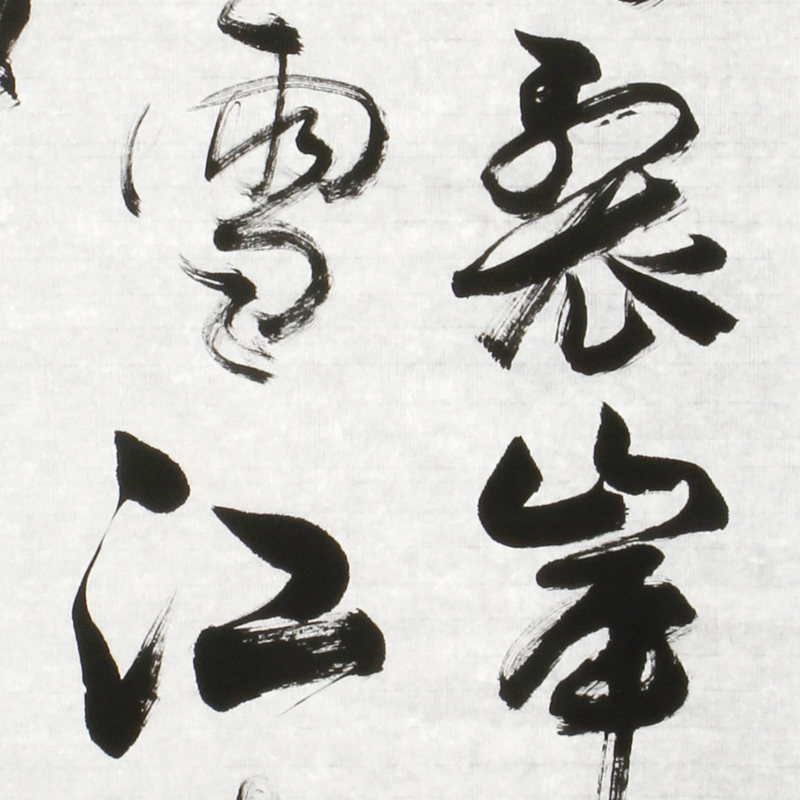 裂岸
雪江